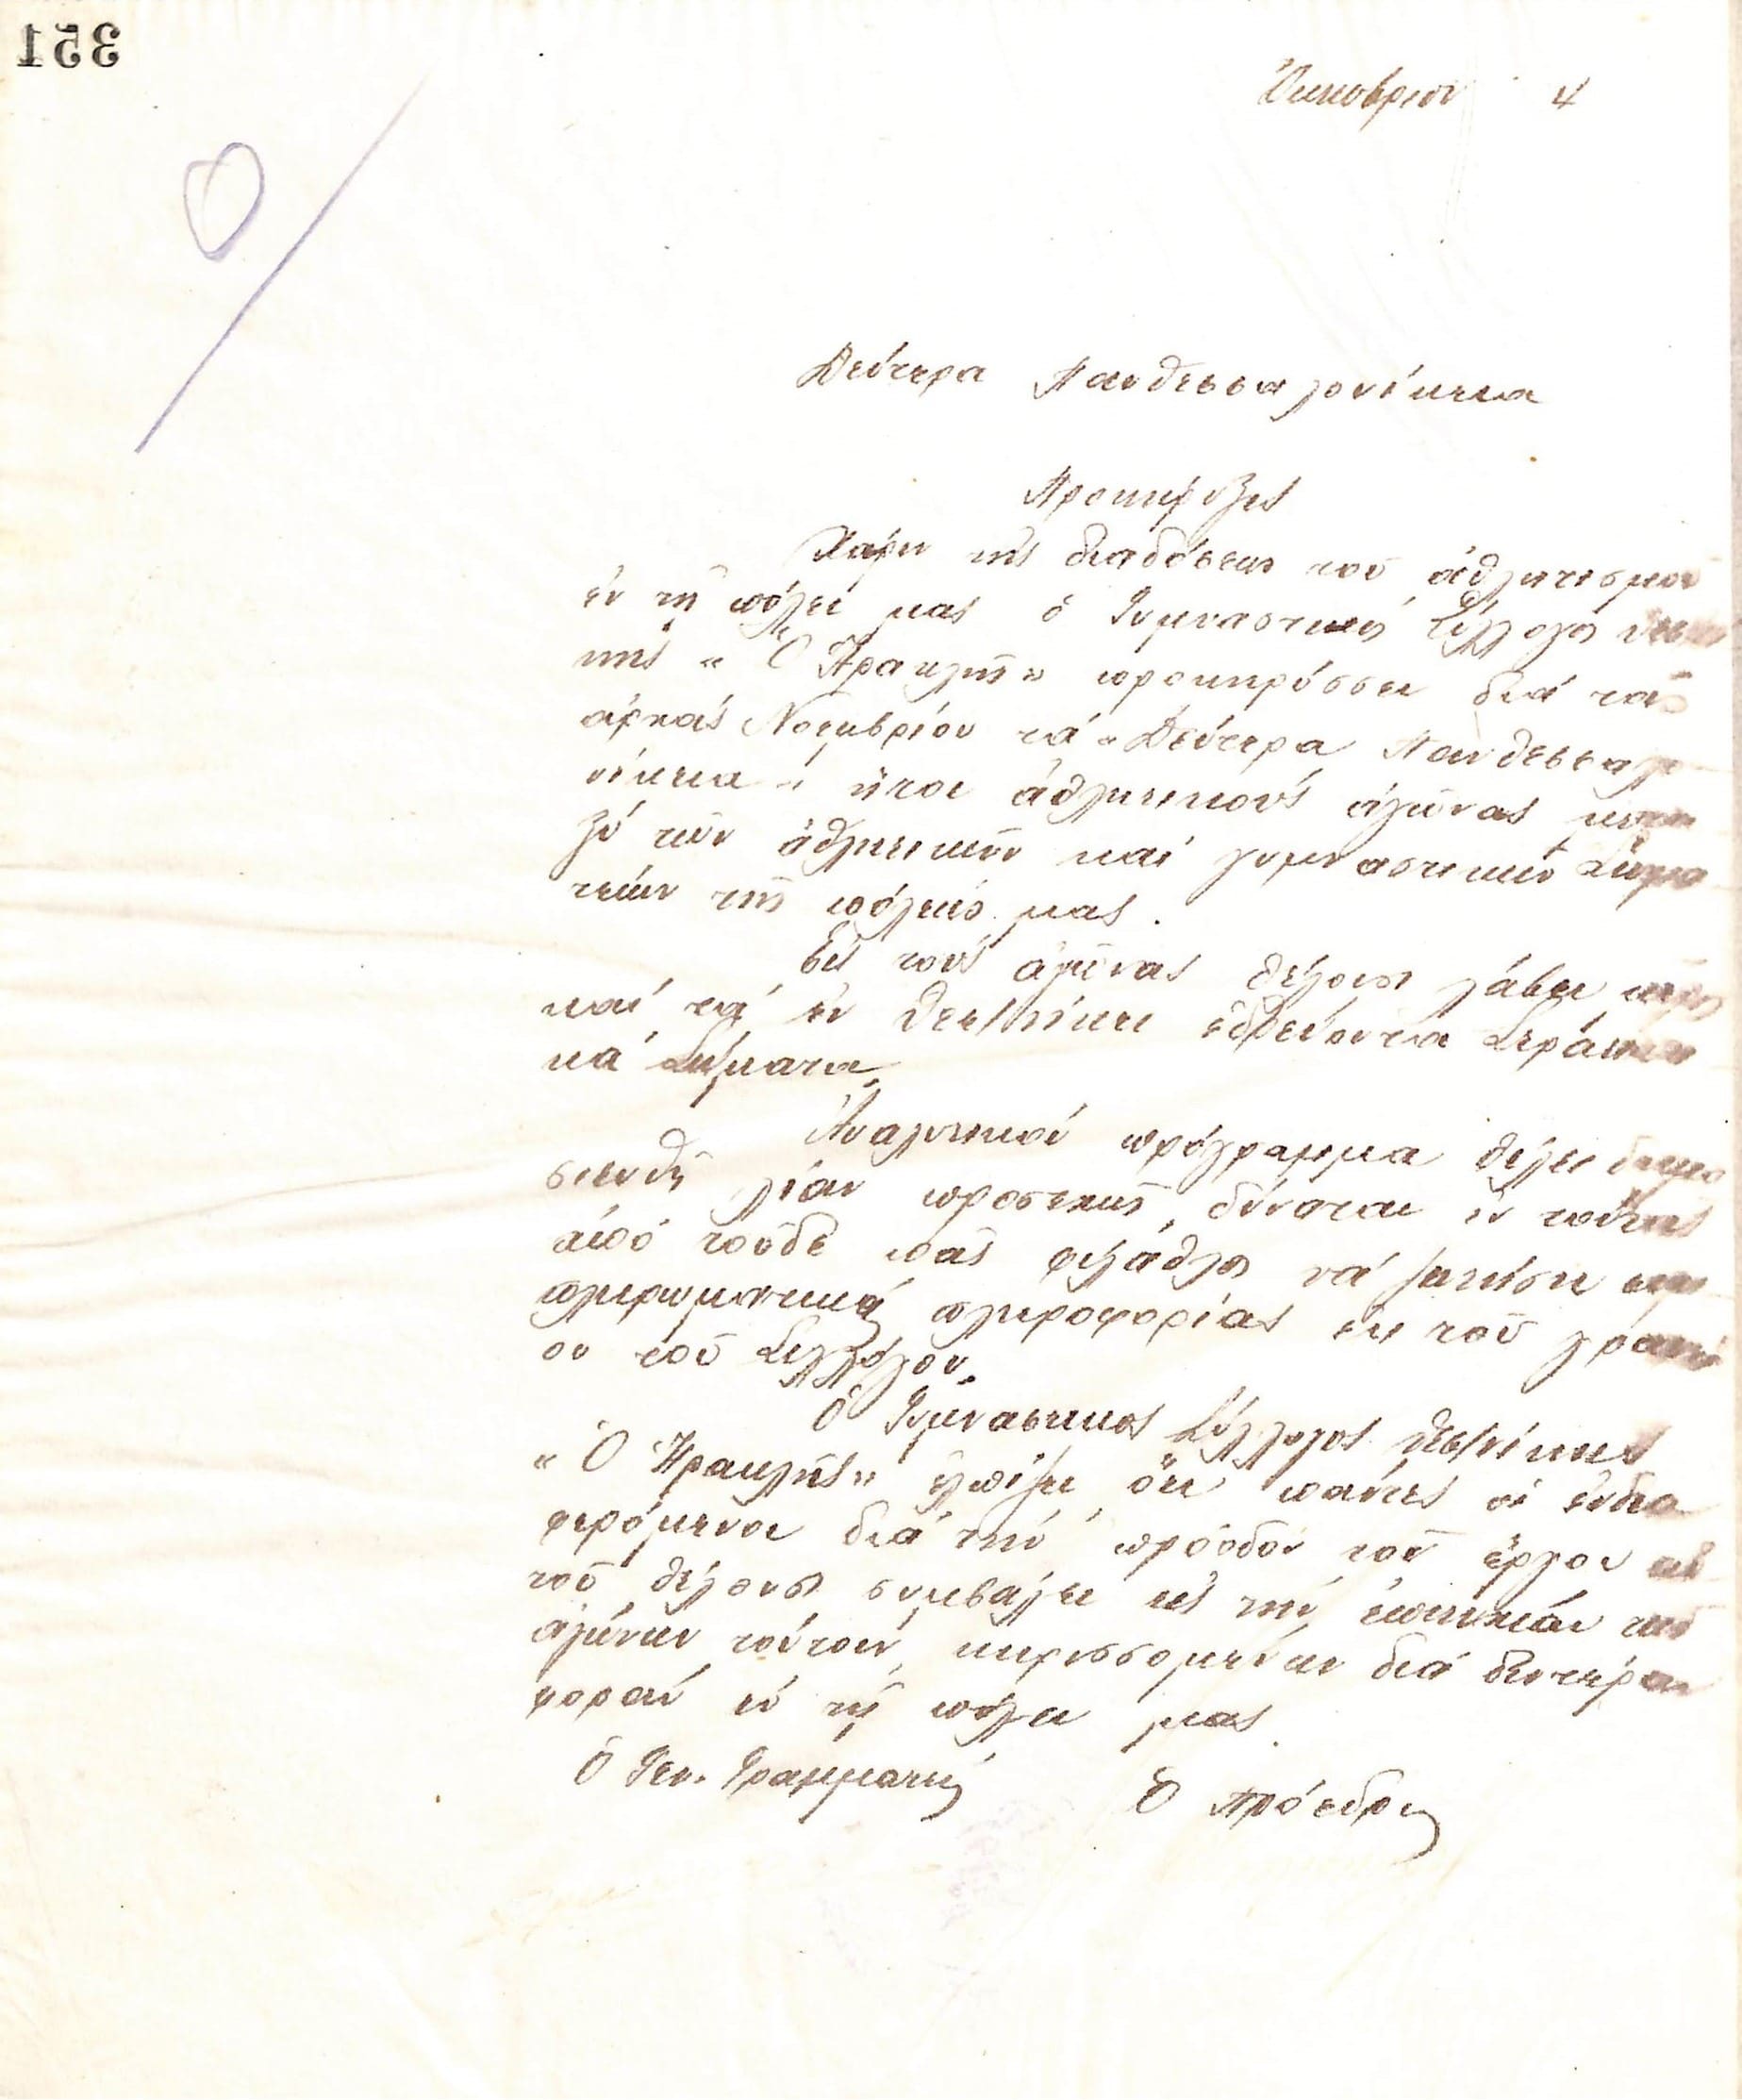 351
Ὀκτωβρίου 4
Δεύτερα Πανθεσσαλονίκεια
Προκήρυξις
Χάριν τῆς διαδόσεως τοῦ ἀθλητισμοῦ
ἐν τῇ πόλει μας ὁ Γυμναστικός Σύλλογος
κης « Ὁ Ἡρακλῆς » προκηρύσσει διά τάς
ἀρχάς Νοεμβρίου τά « Δεύτερα Πανθεσσαλο
νίκεια » ἤτοι ἀθλητικούς ἀγῶνας μετα
ξύ τῶν ἀθλητικῶν καί γυμναστικῶν Σωμα
τείων τῆς πόλεώς μας.
Εἰς τούς ἀγῶνας θέλουσι λάβει μέρος
καί τά ἐν Θεσ/νίκη ἑδρεύοντα
κά Σώματα.
Ἀναλυτικόν πρόγραμμα θέλει δημο
σιευθῆ λίαν προσεχῶς, δύναται ἐν τούτοις
ἀπό τοῦδε πᾶς φίλαθλος νά ζητήση
πληροφορίας ἐκ τοῦ γραφεί
ου τοῦ Συλλόγου.
Ὁ Γυμναστικός Σύλλογος Θεσ/νίκης
« Ὁ Ἡρακλῆς » ἐλπίζει ὅτι πάντες οἱ ἐνδια
φερόμενοι διά τήν πρόοδον τοῦ ἔργου αὐ
τοῦ θέλουσι συμβάλει εἰς τήν ἐπιτυχίαν τῶν
ἀγώνων τούτων, κηρυσσομένων διά δευτέραν
φοράν ἐν τῇ πόλει μας.
Ὁ Γεν. Γραμματεύς Ὁ Πρόεδρος